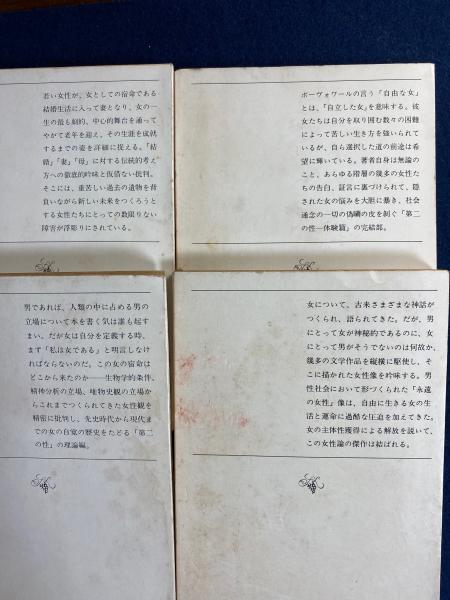 若い女性が、女としての宿命である
結婚生活に入って妻となり、女の一
生の最も劇的、中心的舞台を通って
やがて老年を迎え、その生涯を成就
するまでの姿を詳細に捉える。「結
婚」「妻」「母」に対する伝統的考え
方への徹底的吟味と仮借ない批判。
そこには、重苦しい過去の遺物を背
負いながら新しい未来をつくろうと
する女性たちにとっての数限りない
障害が浮彫りにされている。
ボーヴォワールの言う「自由な女」
とは、「自立した女」を意味する。彼
女たちは自分を取り囲む数々の困難
によって苦しい生き方を強いられて
いるが、自ら選択した道の前途は希
望に輝いている。著者自身は無論の
こと、あらゆる階層の幾多の女性た
ちの告白、証言に裏づけられて、隠
された女の悩みを大胆に暴き、社会
通念の一切の偽瞞の皮を剝ぐ「第二
の性―体験篇」の完結部。
男であれば、人類の中に占める男の
立場について本を書く気は誰も起す
まい。だが女は自分を定義する時、
まず「私は女である」と明言しなけ
ればならないのだ。この女の宿命は
どこから来たのか――生物学的条件、
精神分析の立場、唯物史観の立場か
らこれまでつくられてきた女性観を
精密に批判し、先史時代から現代ま
での女の自覚の歴史をたどる「第二
の性」の理論編。
女について、古来さまざまな神話が
つくられ、語られてきた。だが、男
にとって女が神秘的であるのに、女
にとって男がそうでないのは何故か。
幾多の文学作品を縦横に駆使し、そ
こに描かれた女性像を吟味する。男
性社会において形づくられた「永遠
の女性」像は、自由に生きる女の生
活と運命に過酷な圧迫を加えてきた。
女の主体性獲得による解放を説いて、
この女性論の傑作は結ばれる。